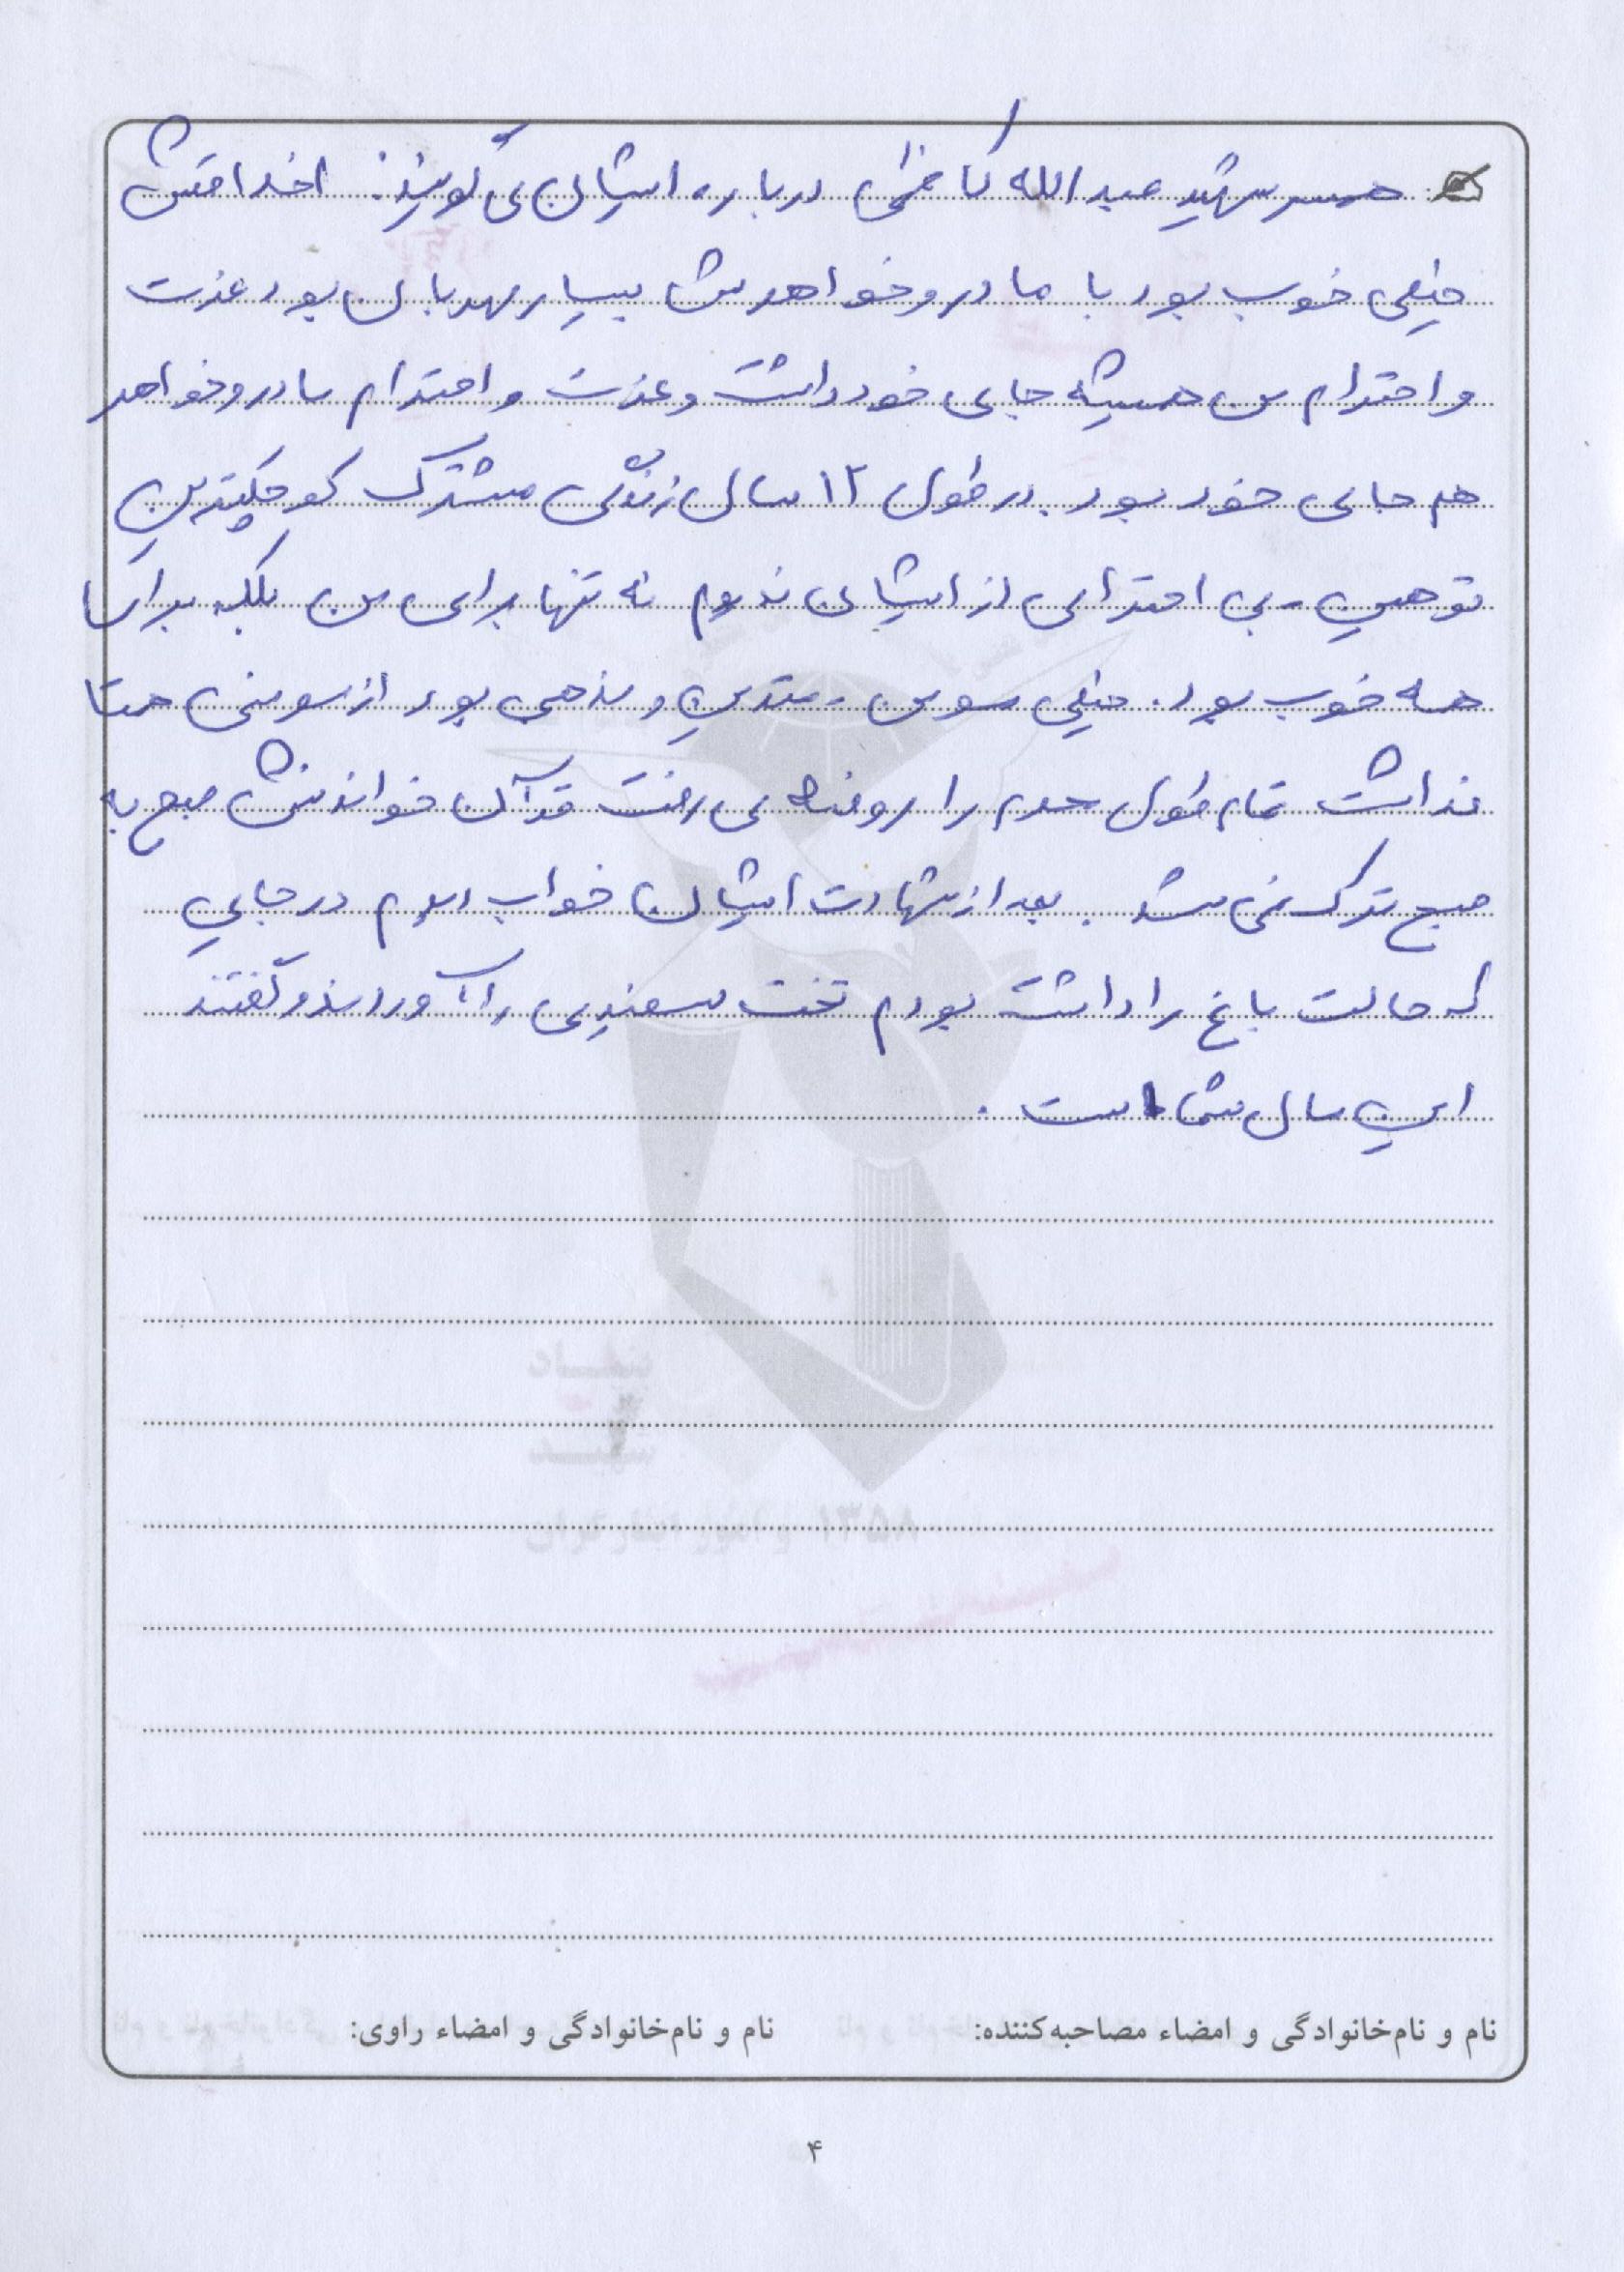 همسر شهید عبدالله کاظمی درباره ایشان می گویند: اخلاقش
خیلی خوب بود با مادر و خواهرش بسیار مهربان بود عزت
و احترام من همیشه جای خود داشت و عزت و احترام مادر و خواهر
هم جای خود بود. در طول ۱۲ سال زندگی مشترک کوچکترین
توهین - بی احترامی از ایشان ندیدم نه تنها برای من بلکه برای
همه خوب بود. خیلی مومن - متدین و مذهبی بود از مومنی همتا
نداشت تمام طول محرم را روضه می رفت قرآن خواندنش صبح به
صبح ترک نمی شد. بعد از شهادت ایشان خواب دیدم در جایی
که حالت باغ را داشت بودم تخت سفیدی را آوردند و گفتند
این مال شما است.
نام و نام‌خانوادگی و امضاء مصاحبه‌کننده:
نام و نام‌خانوادگی و امضاء راوی:
۴